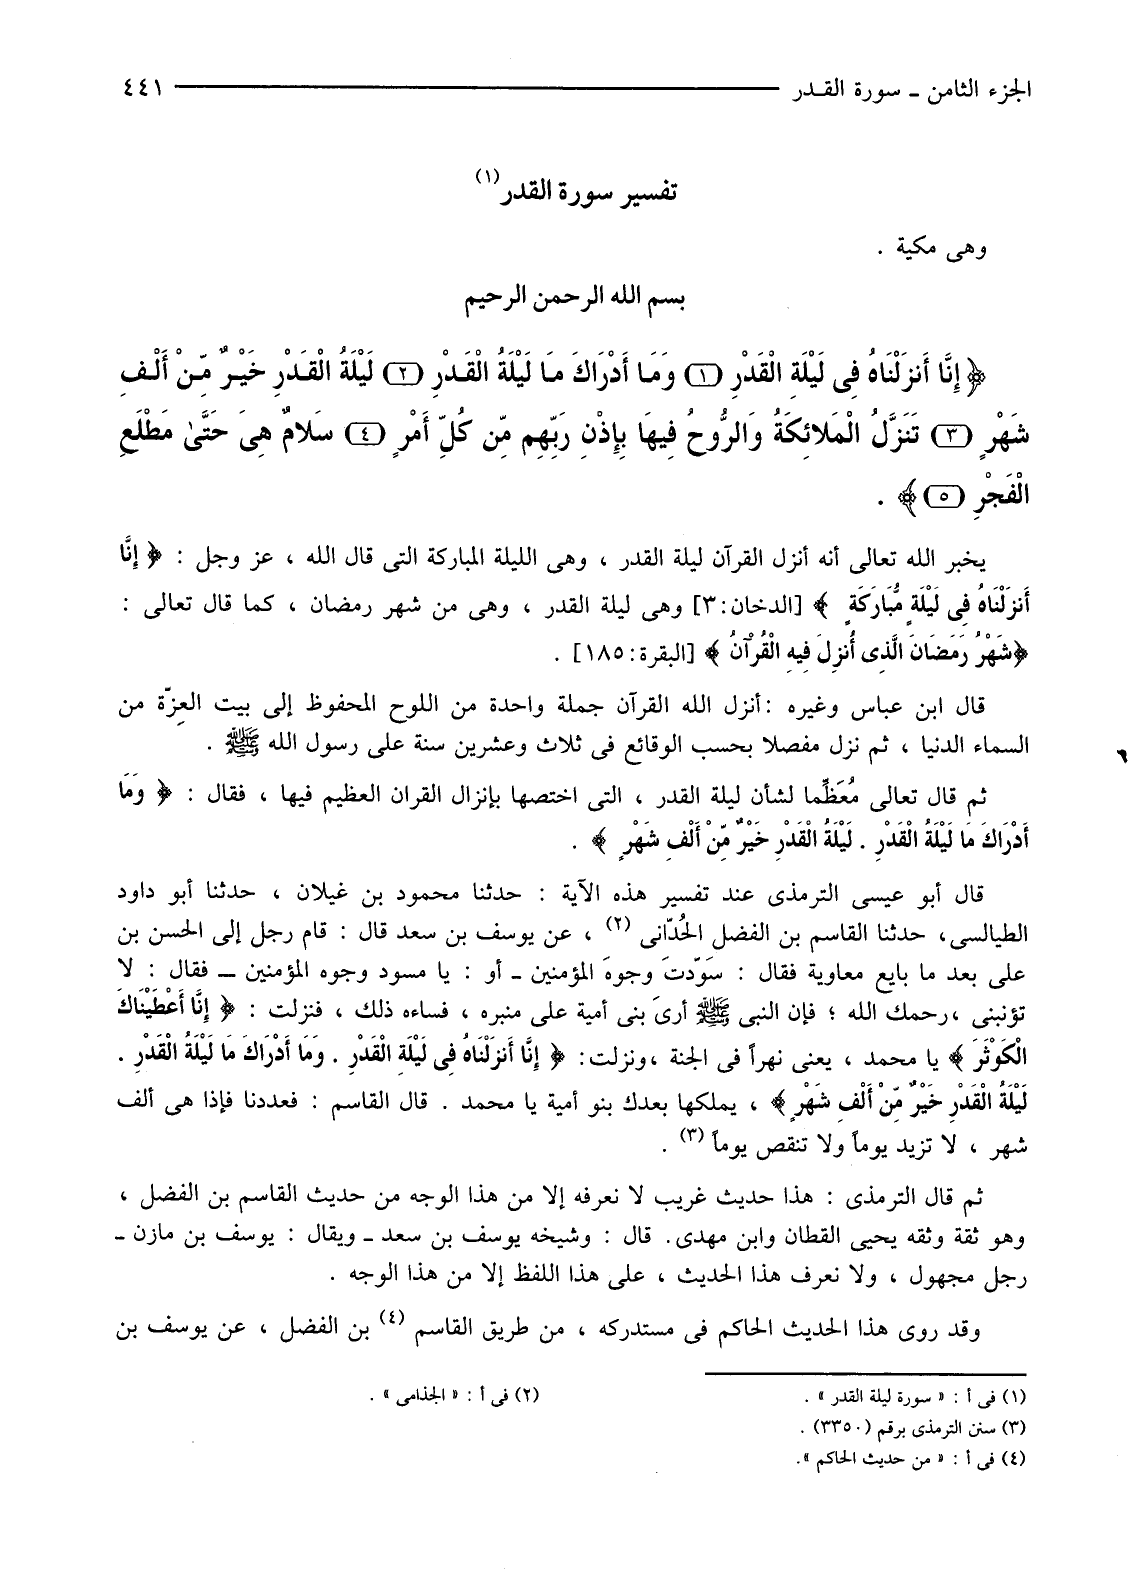 الجزء الثامن ـ سورة القـدر ٤٤١
تفسير سورة القدر(١)
وهى مكية .
بسم الله الرحمن الرحيم
﴿ إِنَّا أَنزَلْنَاهُ فِى لَيْلَةِ الْقَدْرِ (١) وَمَا أَدْرَاكَ مَا لَيْلَةُ الْقَدْرِ (٢) لَيْلَةُ الْقَدْرِ خَيْرٌ مِّنْ أَلْفِ
شَهْرٍ (٣) تَنَزَّلُ الْمَلائِكَةُ وَالرُّوحُ فِيهَا بِإِذْنِ رَبِّهِم مِّن كُلِّ أَمْرٍ (٤) سَلامٌ هِىَ حَتَّىٰ مَطْلَعِ
الْفَجْرِ (٥) ﴾ .
يخبر الله تعالى أنه أنزل القرآن ليلة القدر ، وهى الليلة المباركة التى قال الله ، عز وجل : ﴿ إِنَّا
أَنزَلْنَاهُ فِى لَيْلَةٍ مُّبَارَكَةٍ ﴾ [الدخان:٣] وهى ليلة القدر ، وهى من شهر رمضان ، كما قال تعالى :
﴿شَهْرُ رَمَضَانَ الَّذِى أُنزِلَ فِيهِ الْقُرْآنُ ﴾ [البقرة:١٨٥] .
قال ابن عباس وغيره :أنزل الله القرآن جملة واحدة من اللوح المحفوظ إلى بيت العِزّة من
السماء الدنيا ، ثم نزل مفصلا بحسب الوقائع فى ثلاث وعشرين سنة على رسول الله ﷺ .
ثم قال تعالى مُعَظِّما لشأن ليلة القدر ، التى اختصها بإنزال القران العظيم فيها ، فقال : ﴿ وَمَا
أَدْرَاكَ مَا لَيْلَةُ الْقَدْرِ . لَيْلَةُ الْقَدْرِ خَيْرٌ مِّنْ أَلْفِ شَهْرٍ ﴾ .
قال أبو عيسى الترمذى عند تفسير هذه الآية : حدثنا محمود بن غيلان ، حدثنا أبو داود
الطيالسى، حدثنا القاسم بن الفضل الحُدّانى (٢) ، عن يوسف بن سعد قال : قام رجل إلى الحسن بن
على بعد ما بايع معاوية فقال : سَوّدتَ وجوهَ المؤمنين ـ أو : يا مسود وجوه المؤمنين ـ فقال : لا
تؤنبنى ،رحمك الله ؛ فإن النبى ﷺ أُرىَ بنى أمية على منبره ، فساءه ذلك ، فنزلت : ﴿ إِنَّا أَعْطَيْنَاكَ
الْكَوْثَرَ ﴾ يا محمد ، يعنى نهراً فى الجنة ،ونزلت: ﴿ إِنَّا أَنزَلْنَاهُ فِى لَيْلَةِ الْقَدْرِ . وَمَا أَدْرَاكَ مَا لَيْلَةُ الْقَدْرِ .
لَيْلَةُ الْقَدْرِ خَيْرٌ مِّنْ أَلْفِ شَهْرٍ﴾ ، يملكها بعدك بنو أمية يا محمد . قال القاسم : فعددنا فإذا هى ألف
شهر ، لا تزيد يوماً ولا تنقص يوماً (٣) .
ثم قال الترمذى : هذا حديث غريب لا نعرفه إلا من هذا الوجه من حديث القاسم بن الفضل ،
وهو ثقة وثقه يحيى القطان وابن مهدى. قال : وشيخه يوسف بن سعد ـ ويقال : يوسف بن مازن ـ
رجل مجهول ، ولا نعرف هذا الحديث ، على هذا اللفظ إلا من هذا الوجه .
وقد روى هذا الحديث الحاكم فى مستدركه ، من طريق القاسم (٤) بن الفضل ، عن يوسف بن
(١) فى أ : « سورة ليلة القدر » . (٢) فى أ : « الجذامى » .
(٣) سنن الترمذى برقم (٣٣٥٠) .
(٤) فى أ : « من حديث الحاكم ».